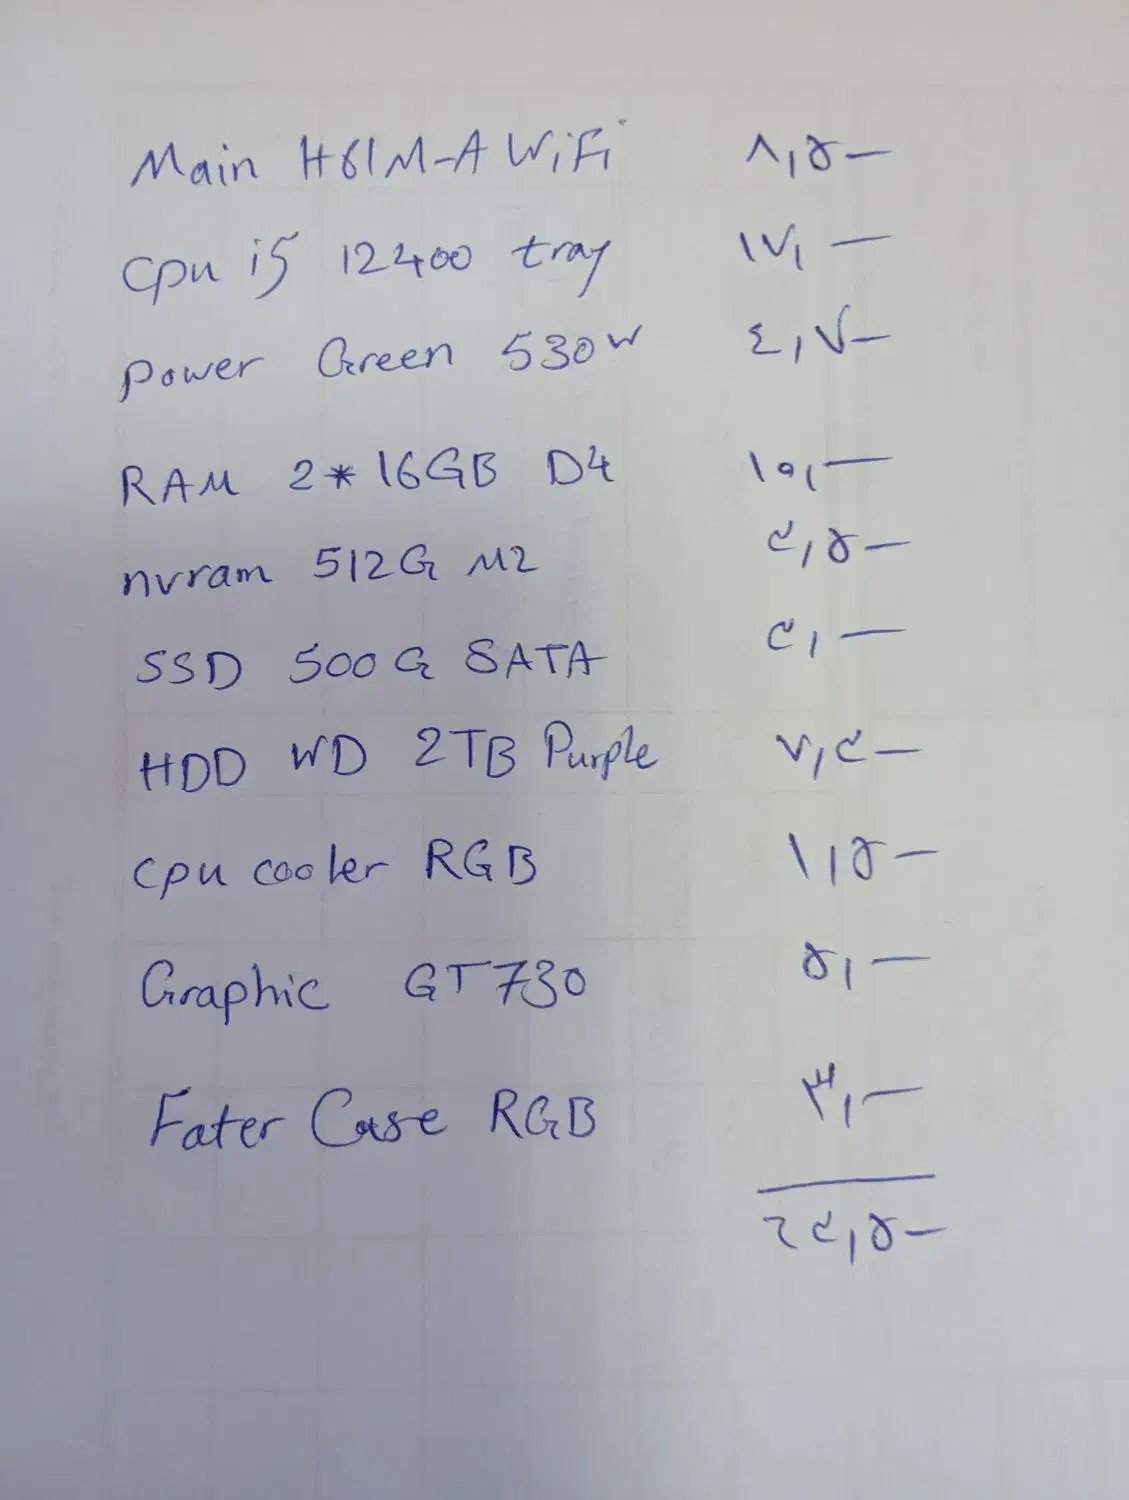 Main H61M-A WiFi ۸,۵—
Cpu i5 12400 tray ۱۷,—
Power Green 530w ٤,۷—
RAM 2*16GB D4 ۱۰,—
nvram 512G M2 ۲,۵—
SSD 500G SATA ۲,—
HDD WD 2TB Purple ۷,۲—
cpu cooler RGB ۱,۵—
Graphic GT730 ۵,—
Fater Case RGB ۳,—
٦۲,۵—